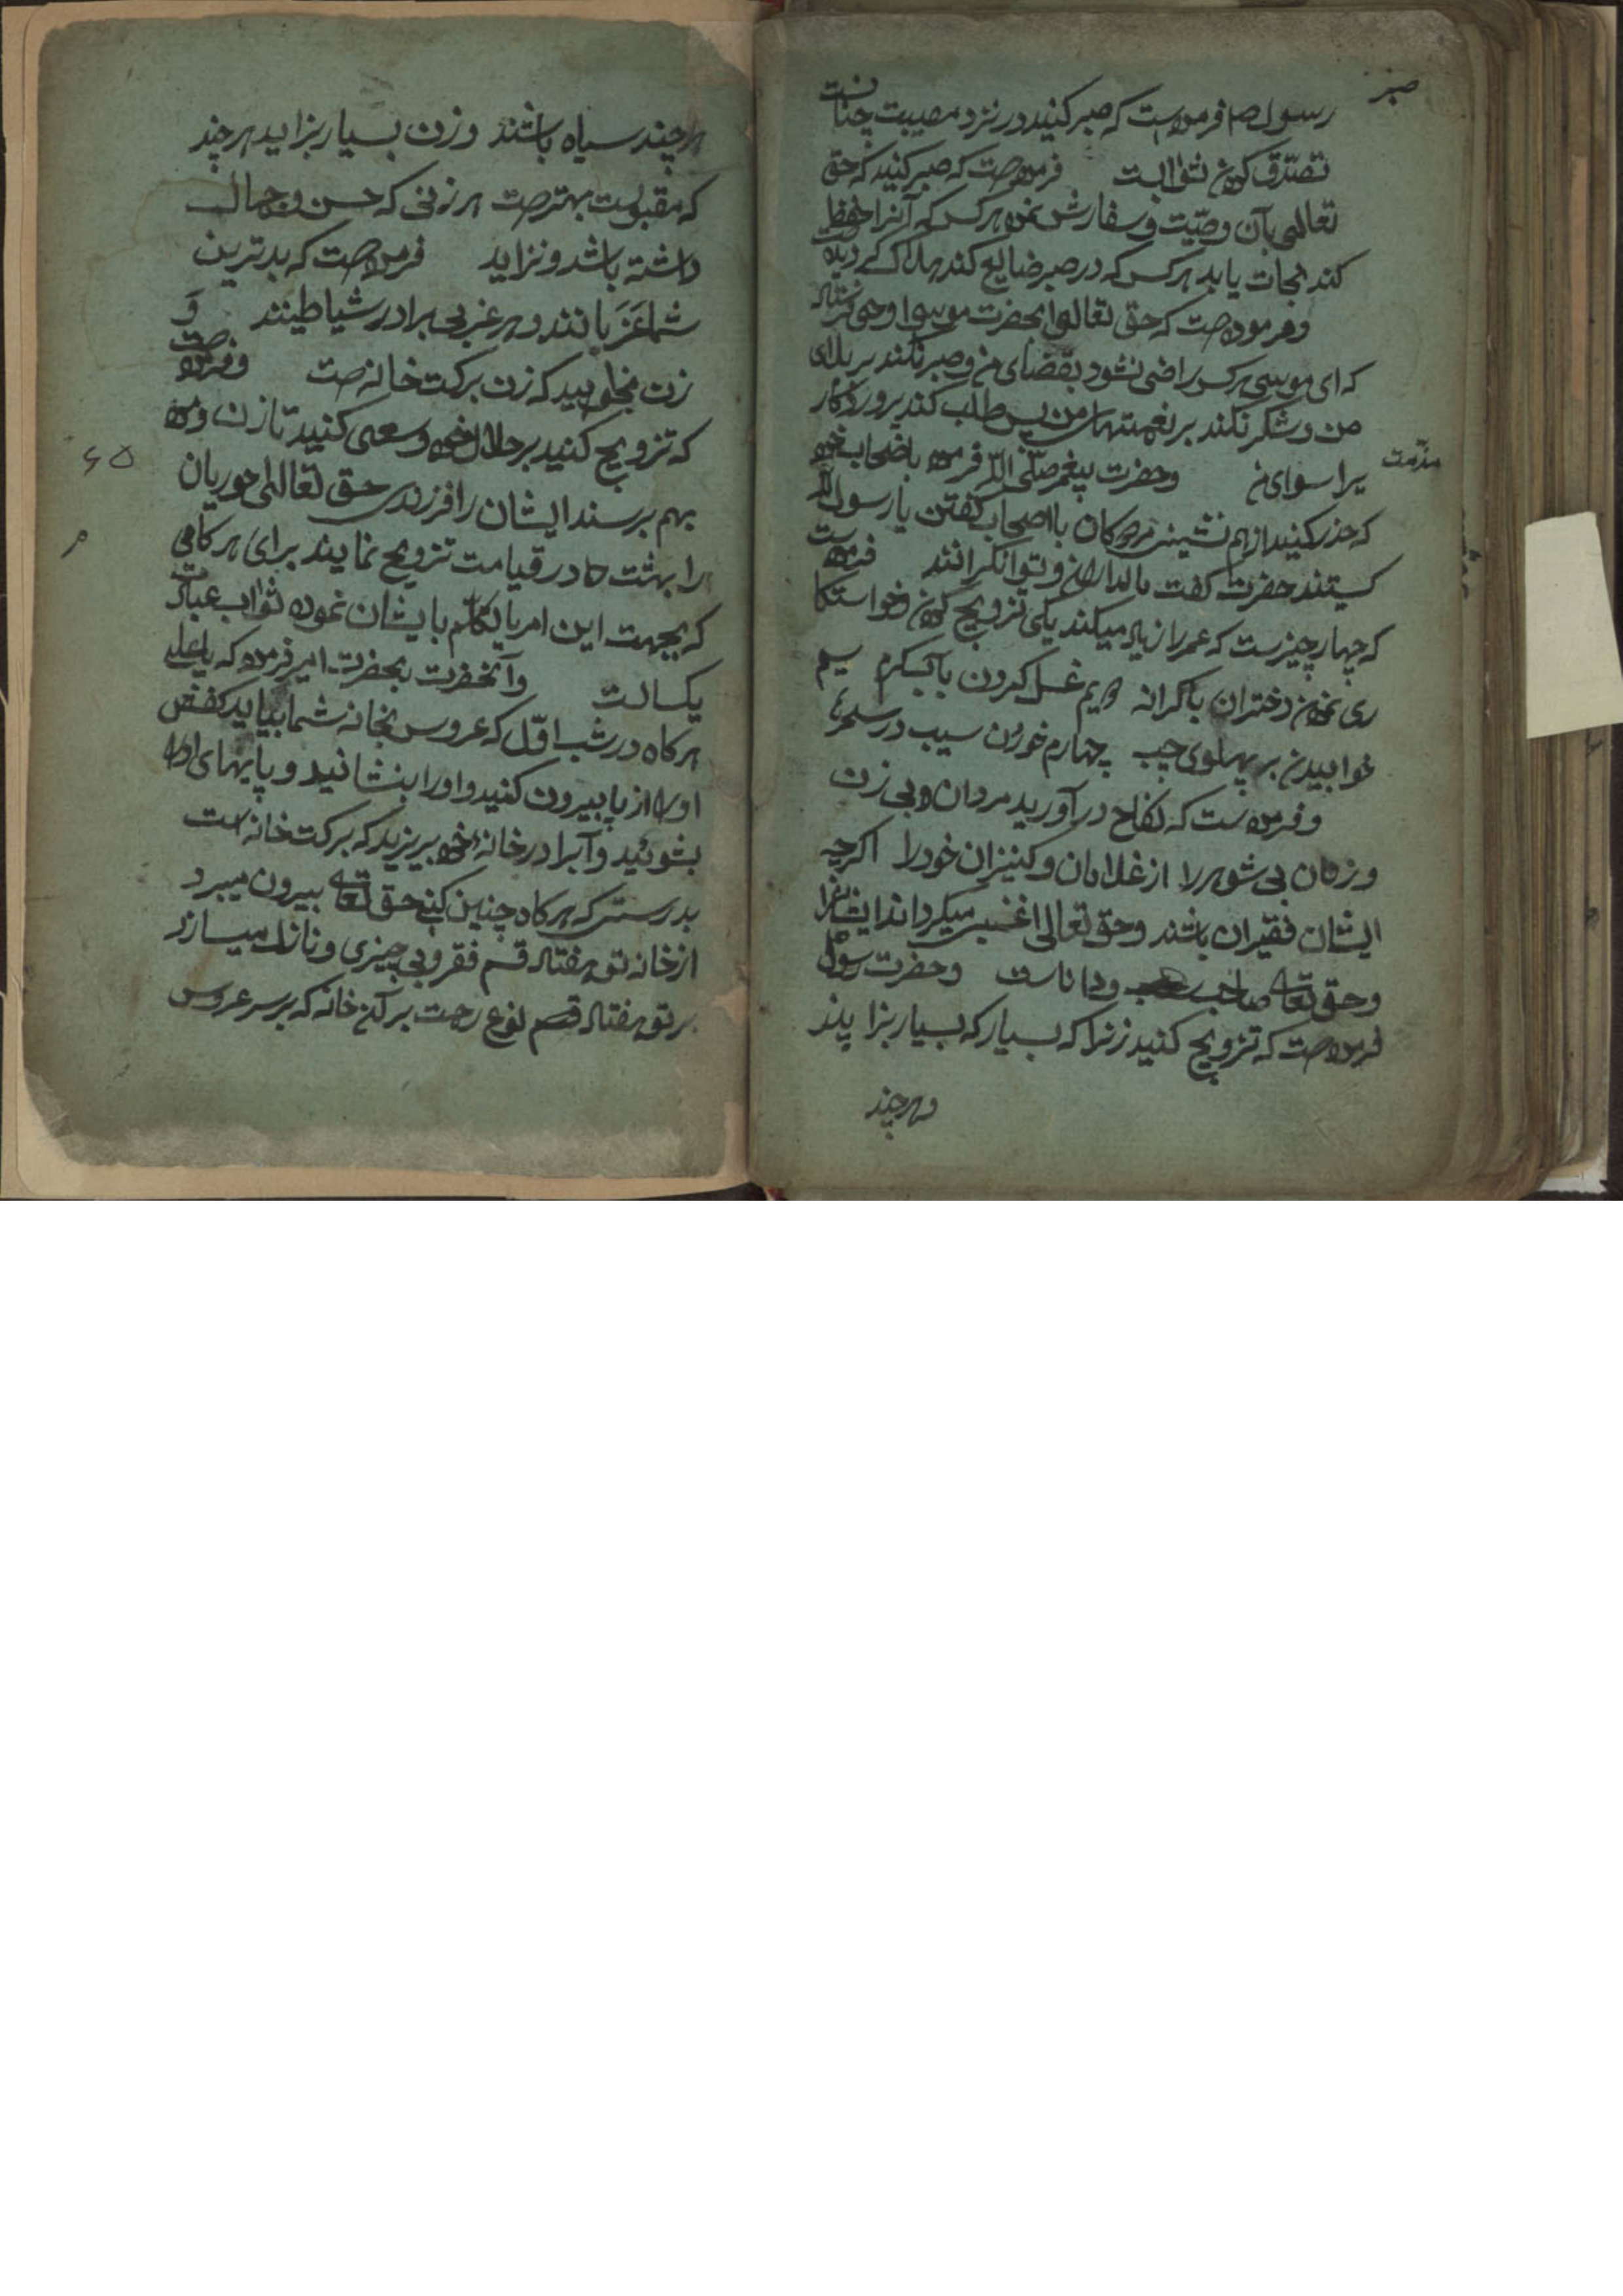 صبر
رسول ص فرموده است که صبر کنید در نزد مصیبت چنانست
تصدّق کردن ثواب است فرموده است که صبر کنید که حق
تعالی بآن وصیّت و سفارش نموده هر کس که آنرا حفظ
کند نجات یابد هر کس که در صبر ضایع کند هلاک
و فرموده است که حق تعالی بحضرت موسی وحی فرستاد
که ای موسی هر کس راضی نشود بقضای من و صبر نکند بر بلای
من و شکر نکند بر نعمتهای من پس طلب کند پروردگار
مذمت
یرا سوای من و حضرت پیغمبر صلّی اللّه فرموده باصحاب خود
که حذر کنید از هم نشینی مردگان با اصحاب گفتن یا رسول اللّه
کیستند حضرت گفت مالداران و توانگرانند فرموده است
که چهار چیزست که عمر را زیاد میکند یکی تزویج کردن و خواستکا
ری نمودن دختران باکرانه دویم غسل کردن بآب گرم سیم
خوابیدن بر پهلوی چپ چهارم خوردن سیب در سحرها
و فرموده است که نکاح در آورید مردان بی زن
و زنان بی شوهر را از غلامان و کنیزان خود را اگر چه
ایشان فقیران باشند و حق تعالی غنی میگرداند ایشانرا
و حق تعالی صاحب و داناست و حضرت رسول
فرموده است که تزویج کنید زنرا که بسیار که بسیار بزایند
و هر چند
هر چند سیاه باشند و زن بسیار بزاید هر چند
که مقبولست بهترست هر زنی که حسن و جمال
داشته باشد و نزاید فرموده است که بدترین
شما عَزَبانند و هر عزبی برادر شیاطینند وَ
زن بخواهید که زن برکت خانه است و فرموده است
که تزویج کنید بر حلال خود و سعی کنید تا زن و مرد
۶۵
بهم برسند ایشان را فرزندی حق تعالی حوریان
را بهشت که در قیامت تزویج نمایند برای هر کامی
که بجهت این امر یا تکلّم بایشان نموده ثواب عبادت
یکسالست و آنحضرت بحضرت امیر فرموده که یا علی
هر کاه در شب اوّل که عروس بخانه شما بیاید کفش
اورا از پا بیرون کنید و اورا بنشانید و پایهای اورا
بشوئید و آبرا در خانه خود بریزید که برکت خانه است
بدرستی که هر کاه چنین کنی حق تعالی بیرون میبرد
از خانه تو هفتاد قسم فقر و بی چیزی و نازل میسازد
بر تو هفتاد قسم نوع رحمت بر آن خانه که بر سر عروس